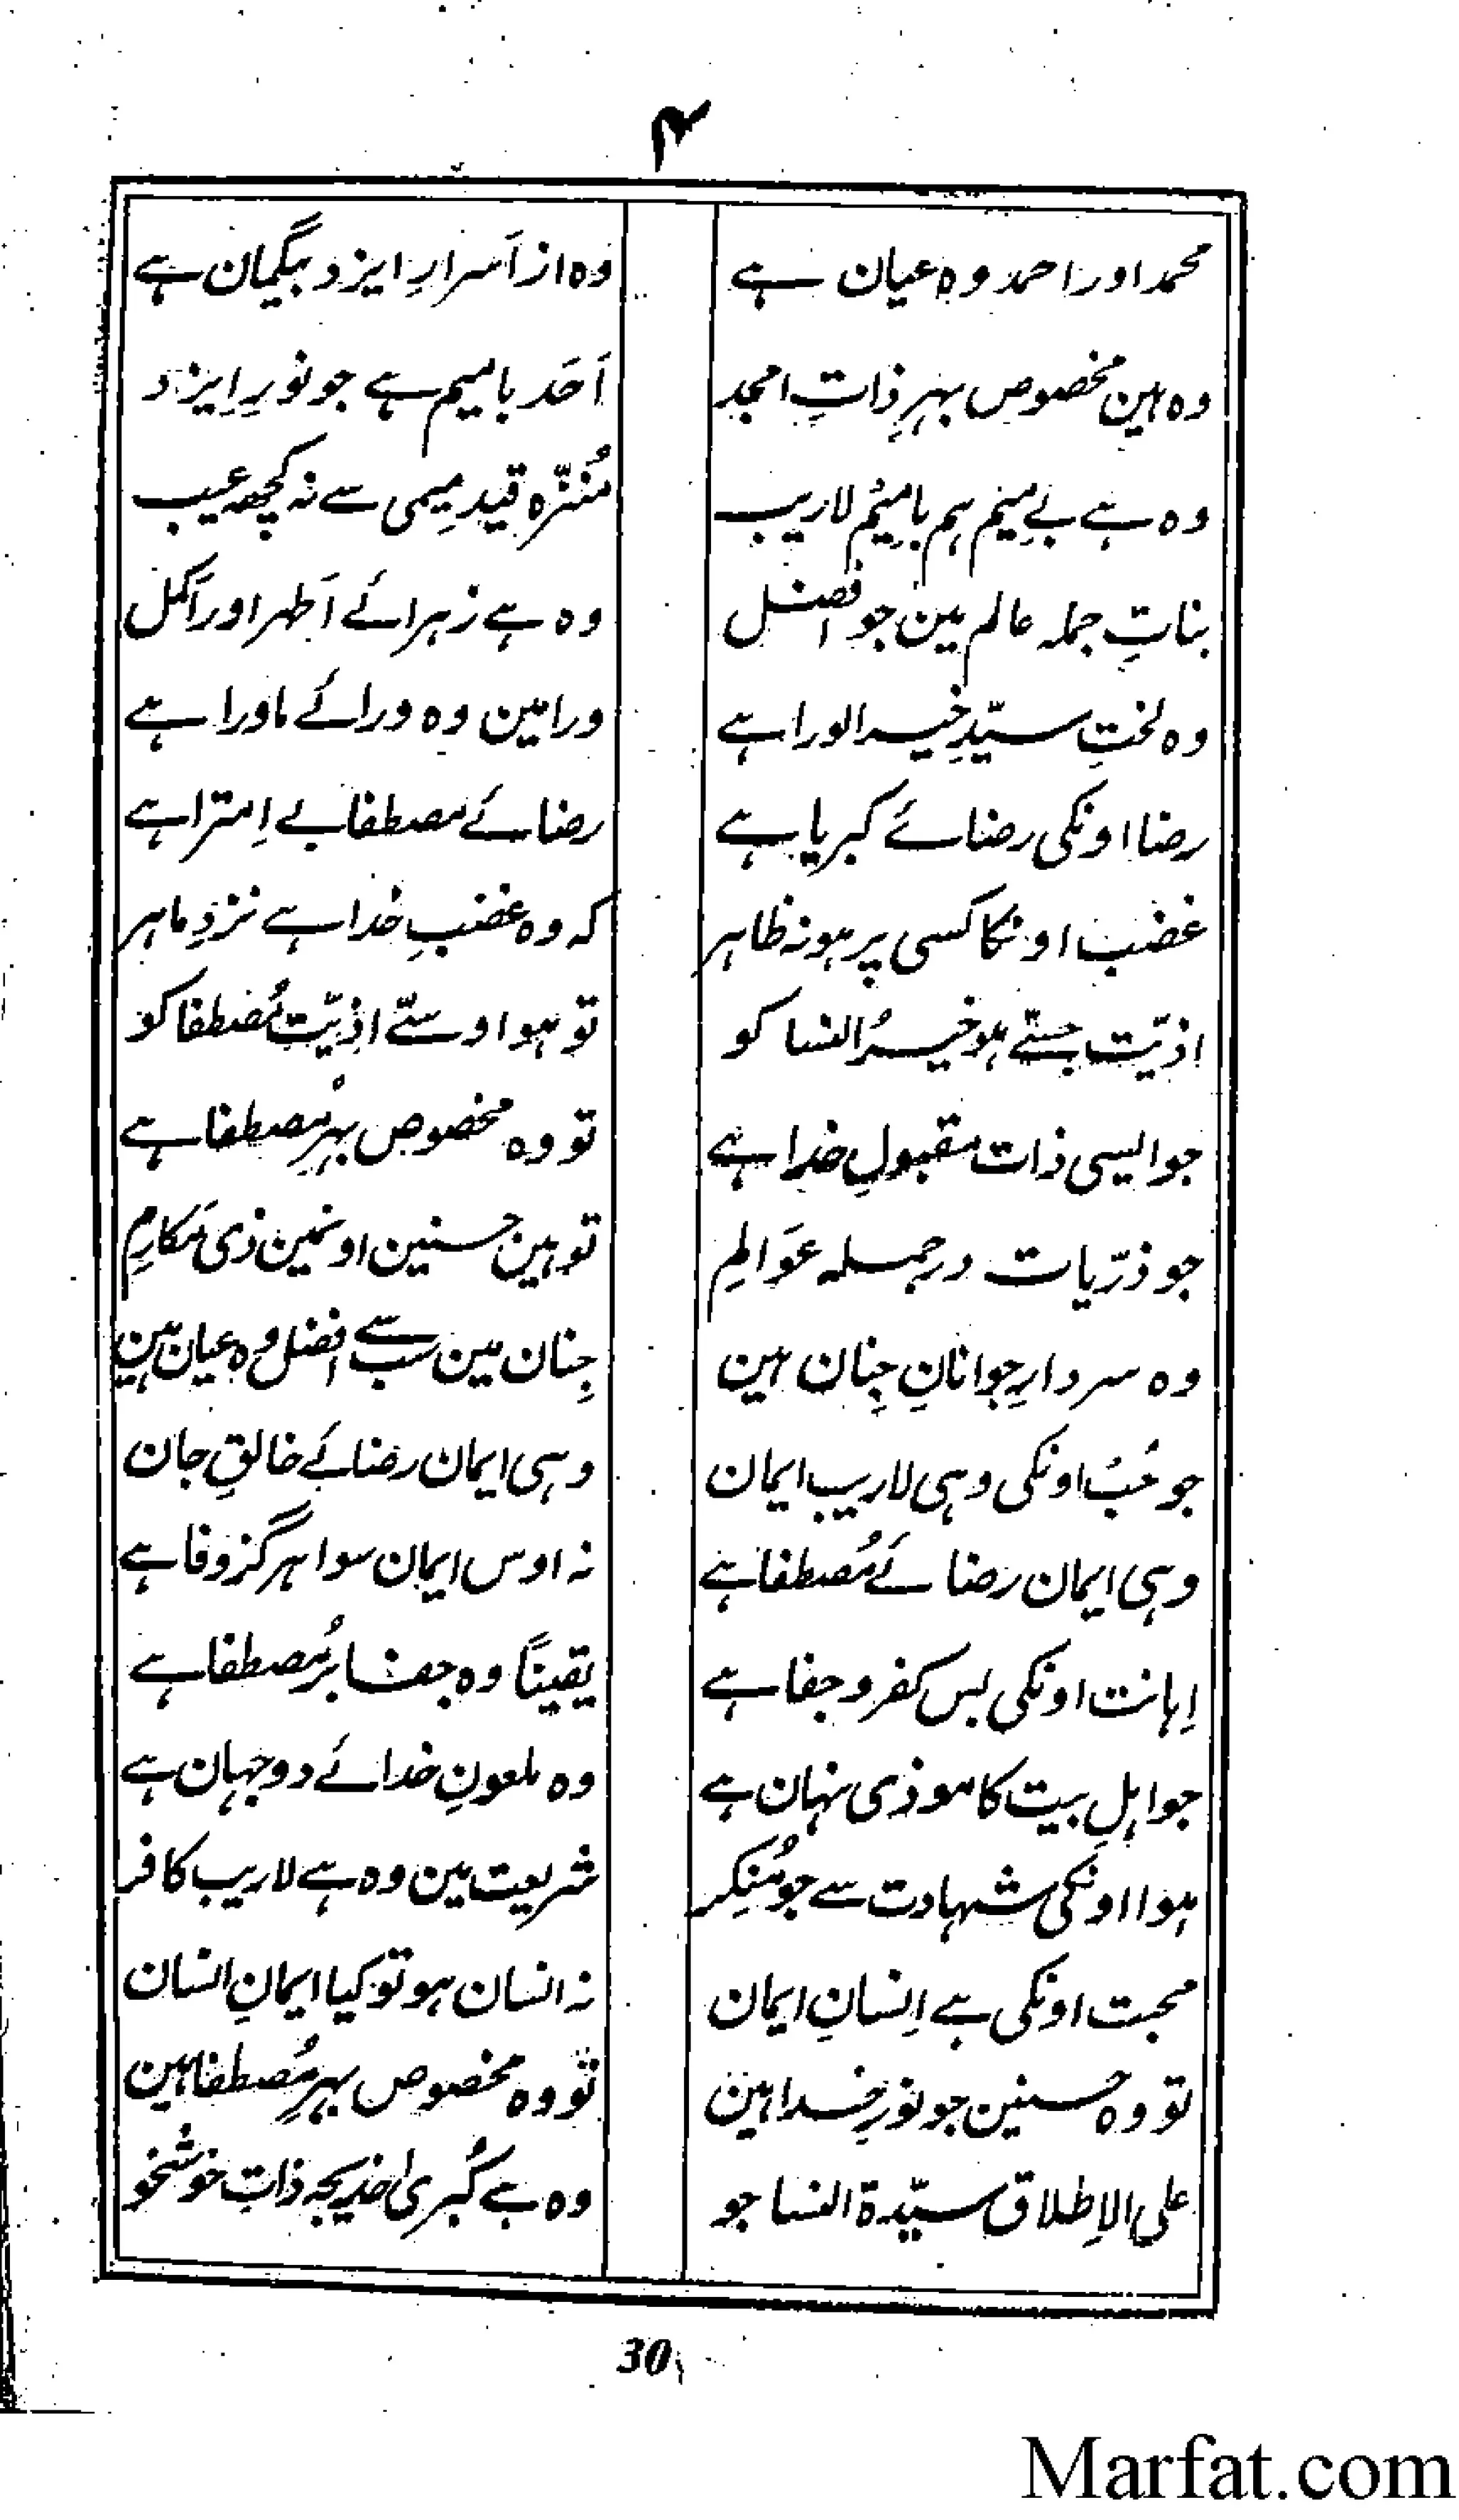 ۴
محمد اور احمد وہ عیان ہے
وہ از اَسرارِ ایزد بیگمان ہے
وہ ہین مخصوص بہرِ ذاتِ امجد
اَحَد بامیم ہے جو نورِ ایزد
وہ ہے بے میم ہم بامیم لاریب
مُنزّہ قیدِ میمی سے نہ کچھ عیب
بناتِ جملہ عالم مین جو افضل
وہ ہے زہرائے اَطہر اور اَکمل
وہ لختِ سیّدِ خیر الورا ہے
ورا مین وہ ورائے ماورا ہے
رضا اونکی رضائے کبریا ہے
رضائے مصطفا بے اِمترا ہے
غضب اونکا کسی پر ہو نہ ظاہر
کہ وہ غضبِ خدا ہے نزدِ ماہر
اذیّت جسّے ہو خیرُ النسا کو
تو ہو اوسّے اذیّت مُصطفا کو
جو ایسی ذات مقبولِ خدا ہے
تو وہ مخصوص بہرِ مُصطفا ہے
جو ذرّیات در جملہ عَوَالِم
تو ہین حسنین اونمین ذی مَکارِم
وہ سردارِ جوانانِ جِنان ہین
جِنان مین سب سے افضل وہ عیان ہین
جو حُب اونکی وہی لاریب ایمان
وہی ایمان رضائے خالقِ جان
وہی ایمان رضائے مُصطفا ہے
نہ اوس ایمان سوا ہرگز وفا ہے
اِہانت اونکی بس کفر و جفا ہے
یقیناً وہ جفا بر مُصطفا ہے
جو اہلِ بیت کا موذی نہان ہے
وہ ملعونِ خدائے دوجہان ہے
ہوا اونکی شہادت سے جو مُنکِر
شریعت مین وہ ہے لاریب کافر
محبت اونکی ہے اِنسانِ ایمان
نہ انسان ہو تو کیا ایمانِ انسان
تو وہ حسنین جو نورِ خدا ہین
تو وہ مخصوص بہرِ مُصطفا ہین
علی الاِطلاق سیّدۃ النسا جو
وہ ہے کُبریٰ خدیجہ ذاتِ خوشخو
30
Marfat.com